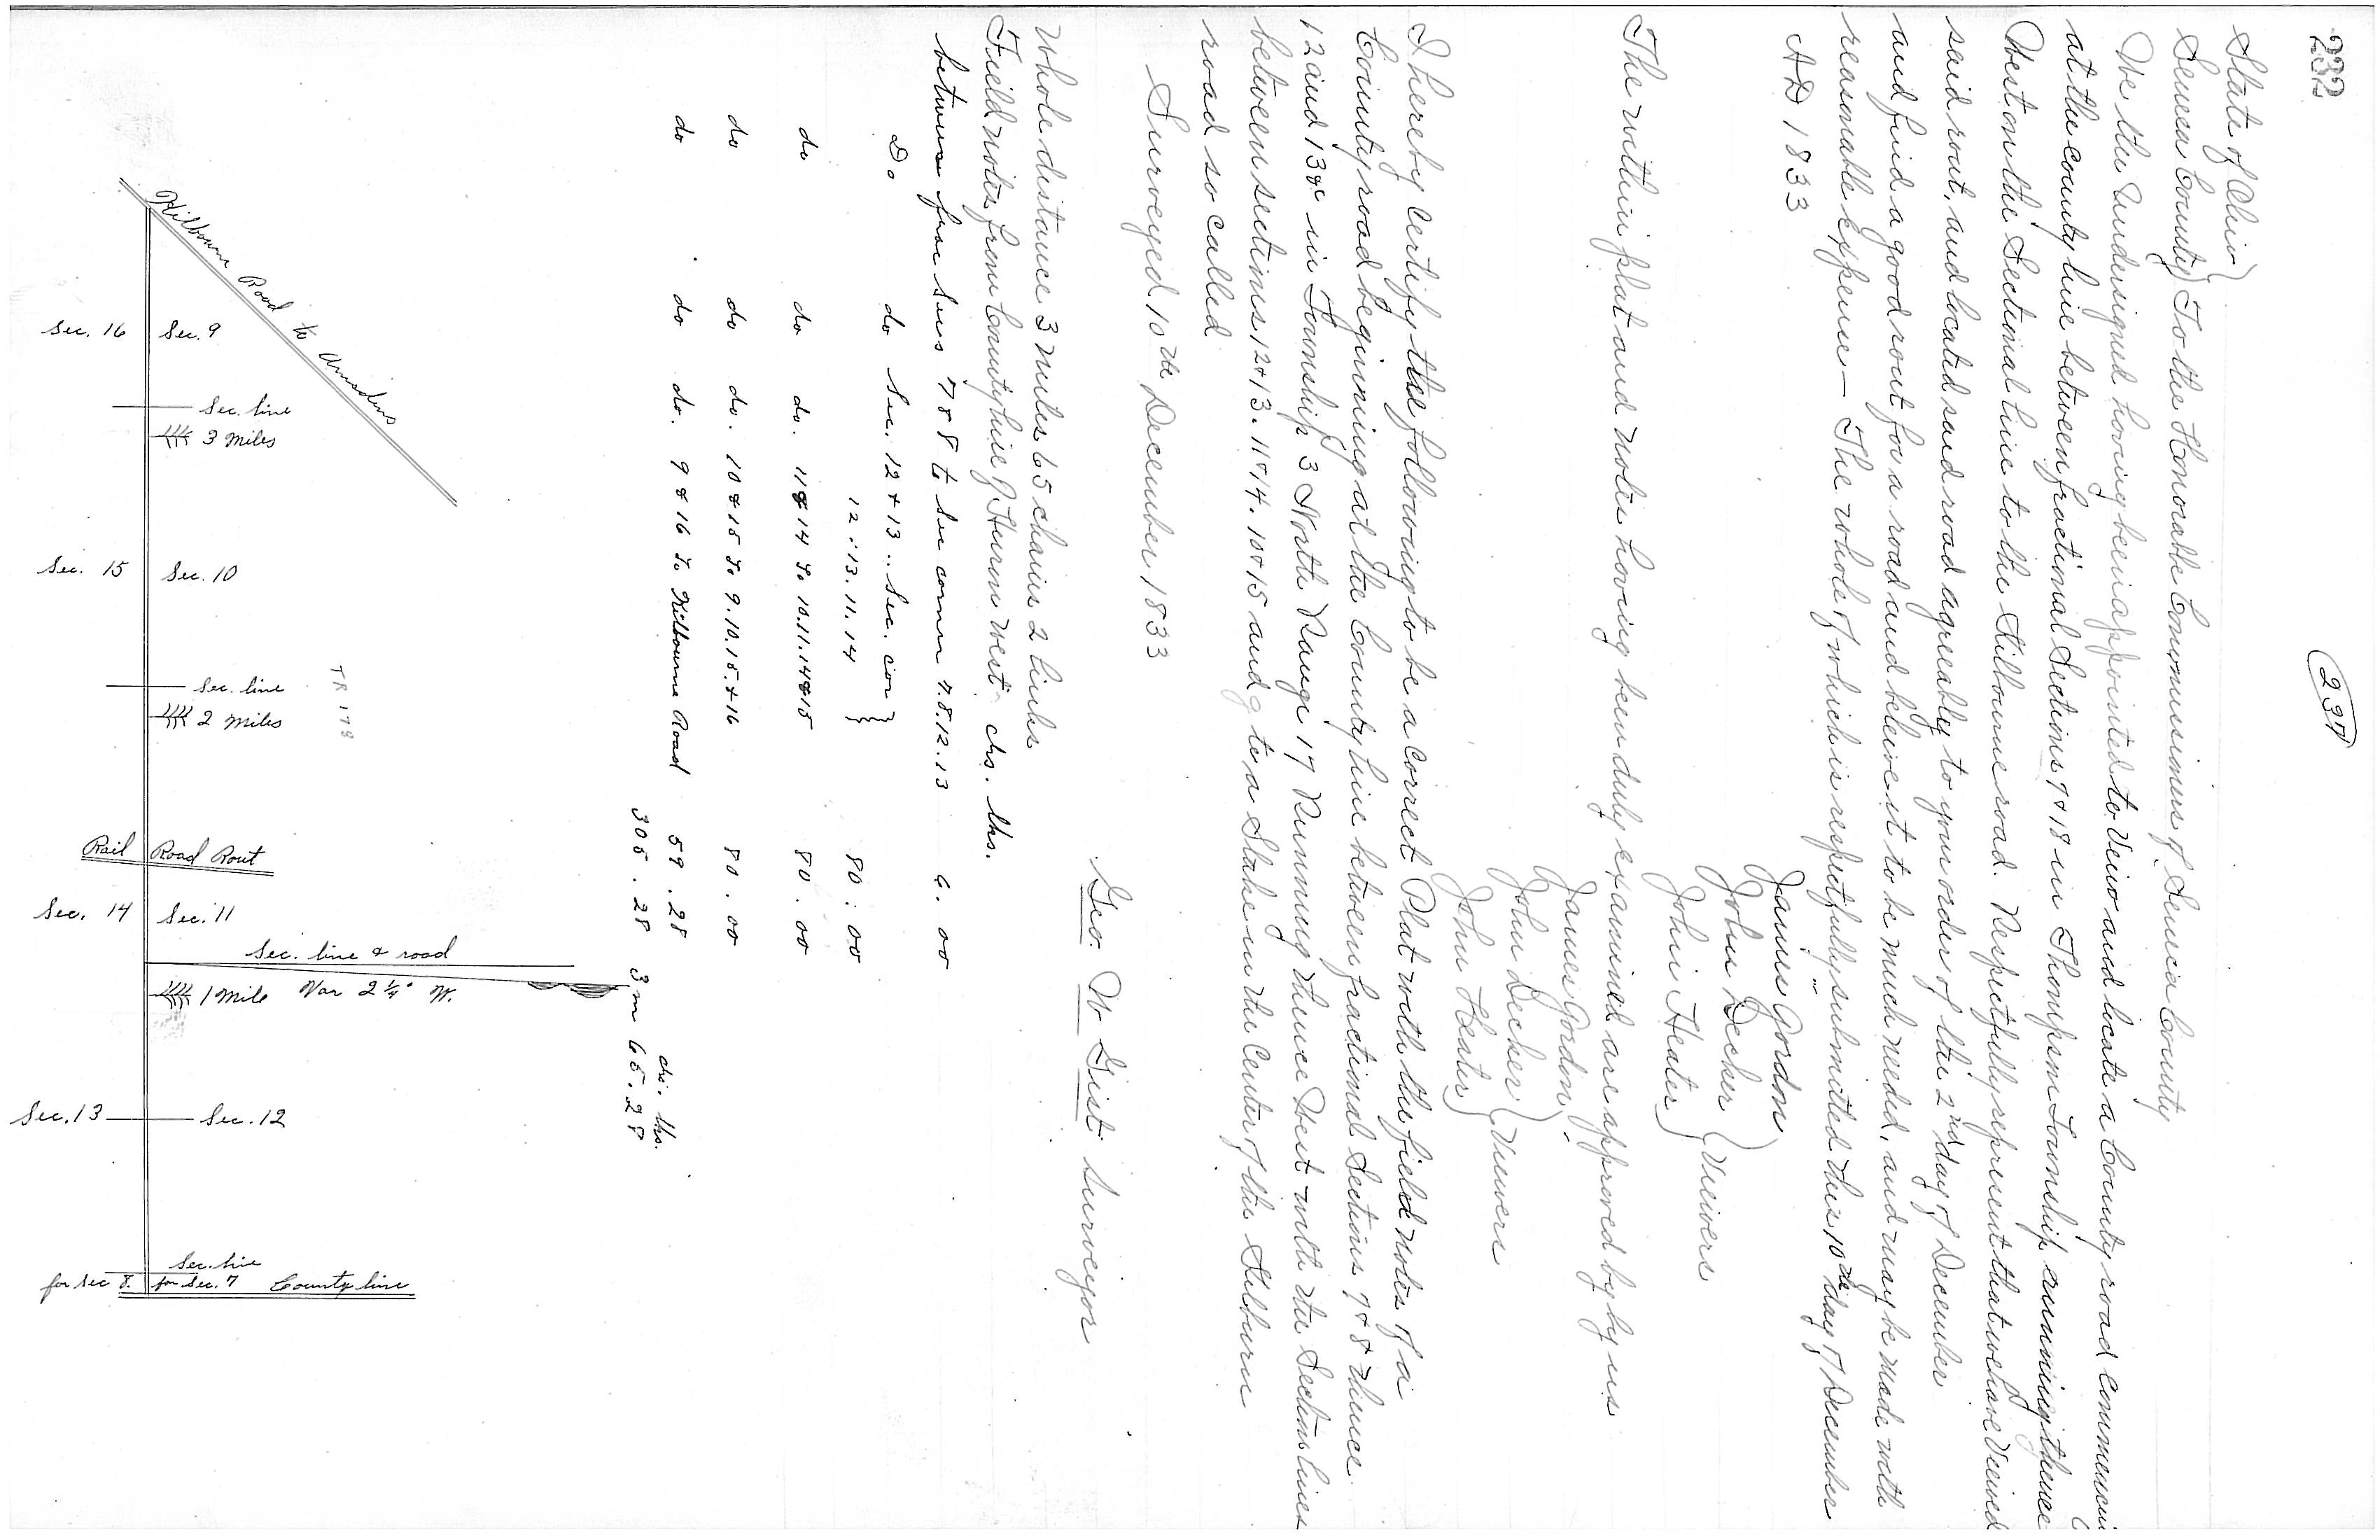 232
237
State of Ohio
Seneca County To the Honorable Commissioners of Seneca County
We the Undersigned having been appointed to View and locate a County road commencin
at the county line between fractional Sections 7 & 18 in Thompson Township running thence
West on the Sectional line to the Kilbourne road. Respectfully represent that we have Viewed
said rout, and located said road agreeably to your order of the 2nd day of December
and find a good rout for a road and beleive it to be much needed, and may be made with
reasonable expense — The whole of which is respectfully submitted this 10th day of December
AD 1833
James Gordon
John Decker Viewers
John Heater
The within plat and notes having been duly examined are approved by by us
James Gordon
John Decker Viewers
John Heater
I hereby Certify the following to be a Correct Plat with the field notes of a
County road beginning at the County line between fractional Sections 7 & 8 thence
12 and 13 &c in Township 3 North Range 17 Running thence West with the Sections lines
between sections 12 & 13. 11 & 14. 10 & 15 and 9 to a Stake in the Center of the Kilburn
road so called
Surveyed 10th December 1833
Geo. W Gist Surveyor
Whole distance 3 miles 65 chains 2 links
Field notes from County line of Huron west chs. lks.
between frac secs 7 & 8 to sec corner 7.8.12.13 6. 00
Do do Sec. 12 & 13 .. Sec. cor
12.13.11.14 80 : 00
do do do. 11 & 14 to 10.11.14 & 15 80 . 00
do do do. 10 & 15 to 9.10.15. & 16 80 . 00
do do do. 9 & 16 to Kilbourne Road 59 . 28 chs. lks.
305 . 28 3 m 65 . 28
Kilbourne Road to Amsdens
Sec. 16 Sec. 9
Sec. line
3 Miles
Sec. 15 Sec. 10
TR 178
Sec. line
2 Miles
Rail Road Rout
Sec. 14 Sec. 11
Sec. line & road
1 Mile Var 2 1/4° W.
Sec. 13 Sec. 12
Sec. line
for Sec 8. for Sec. 7 County line